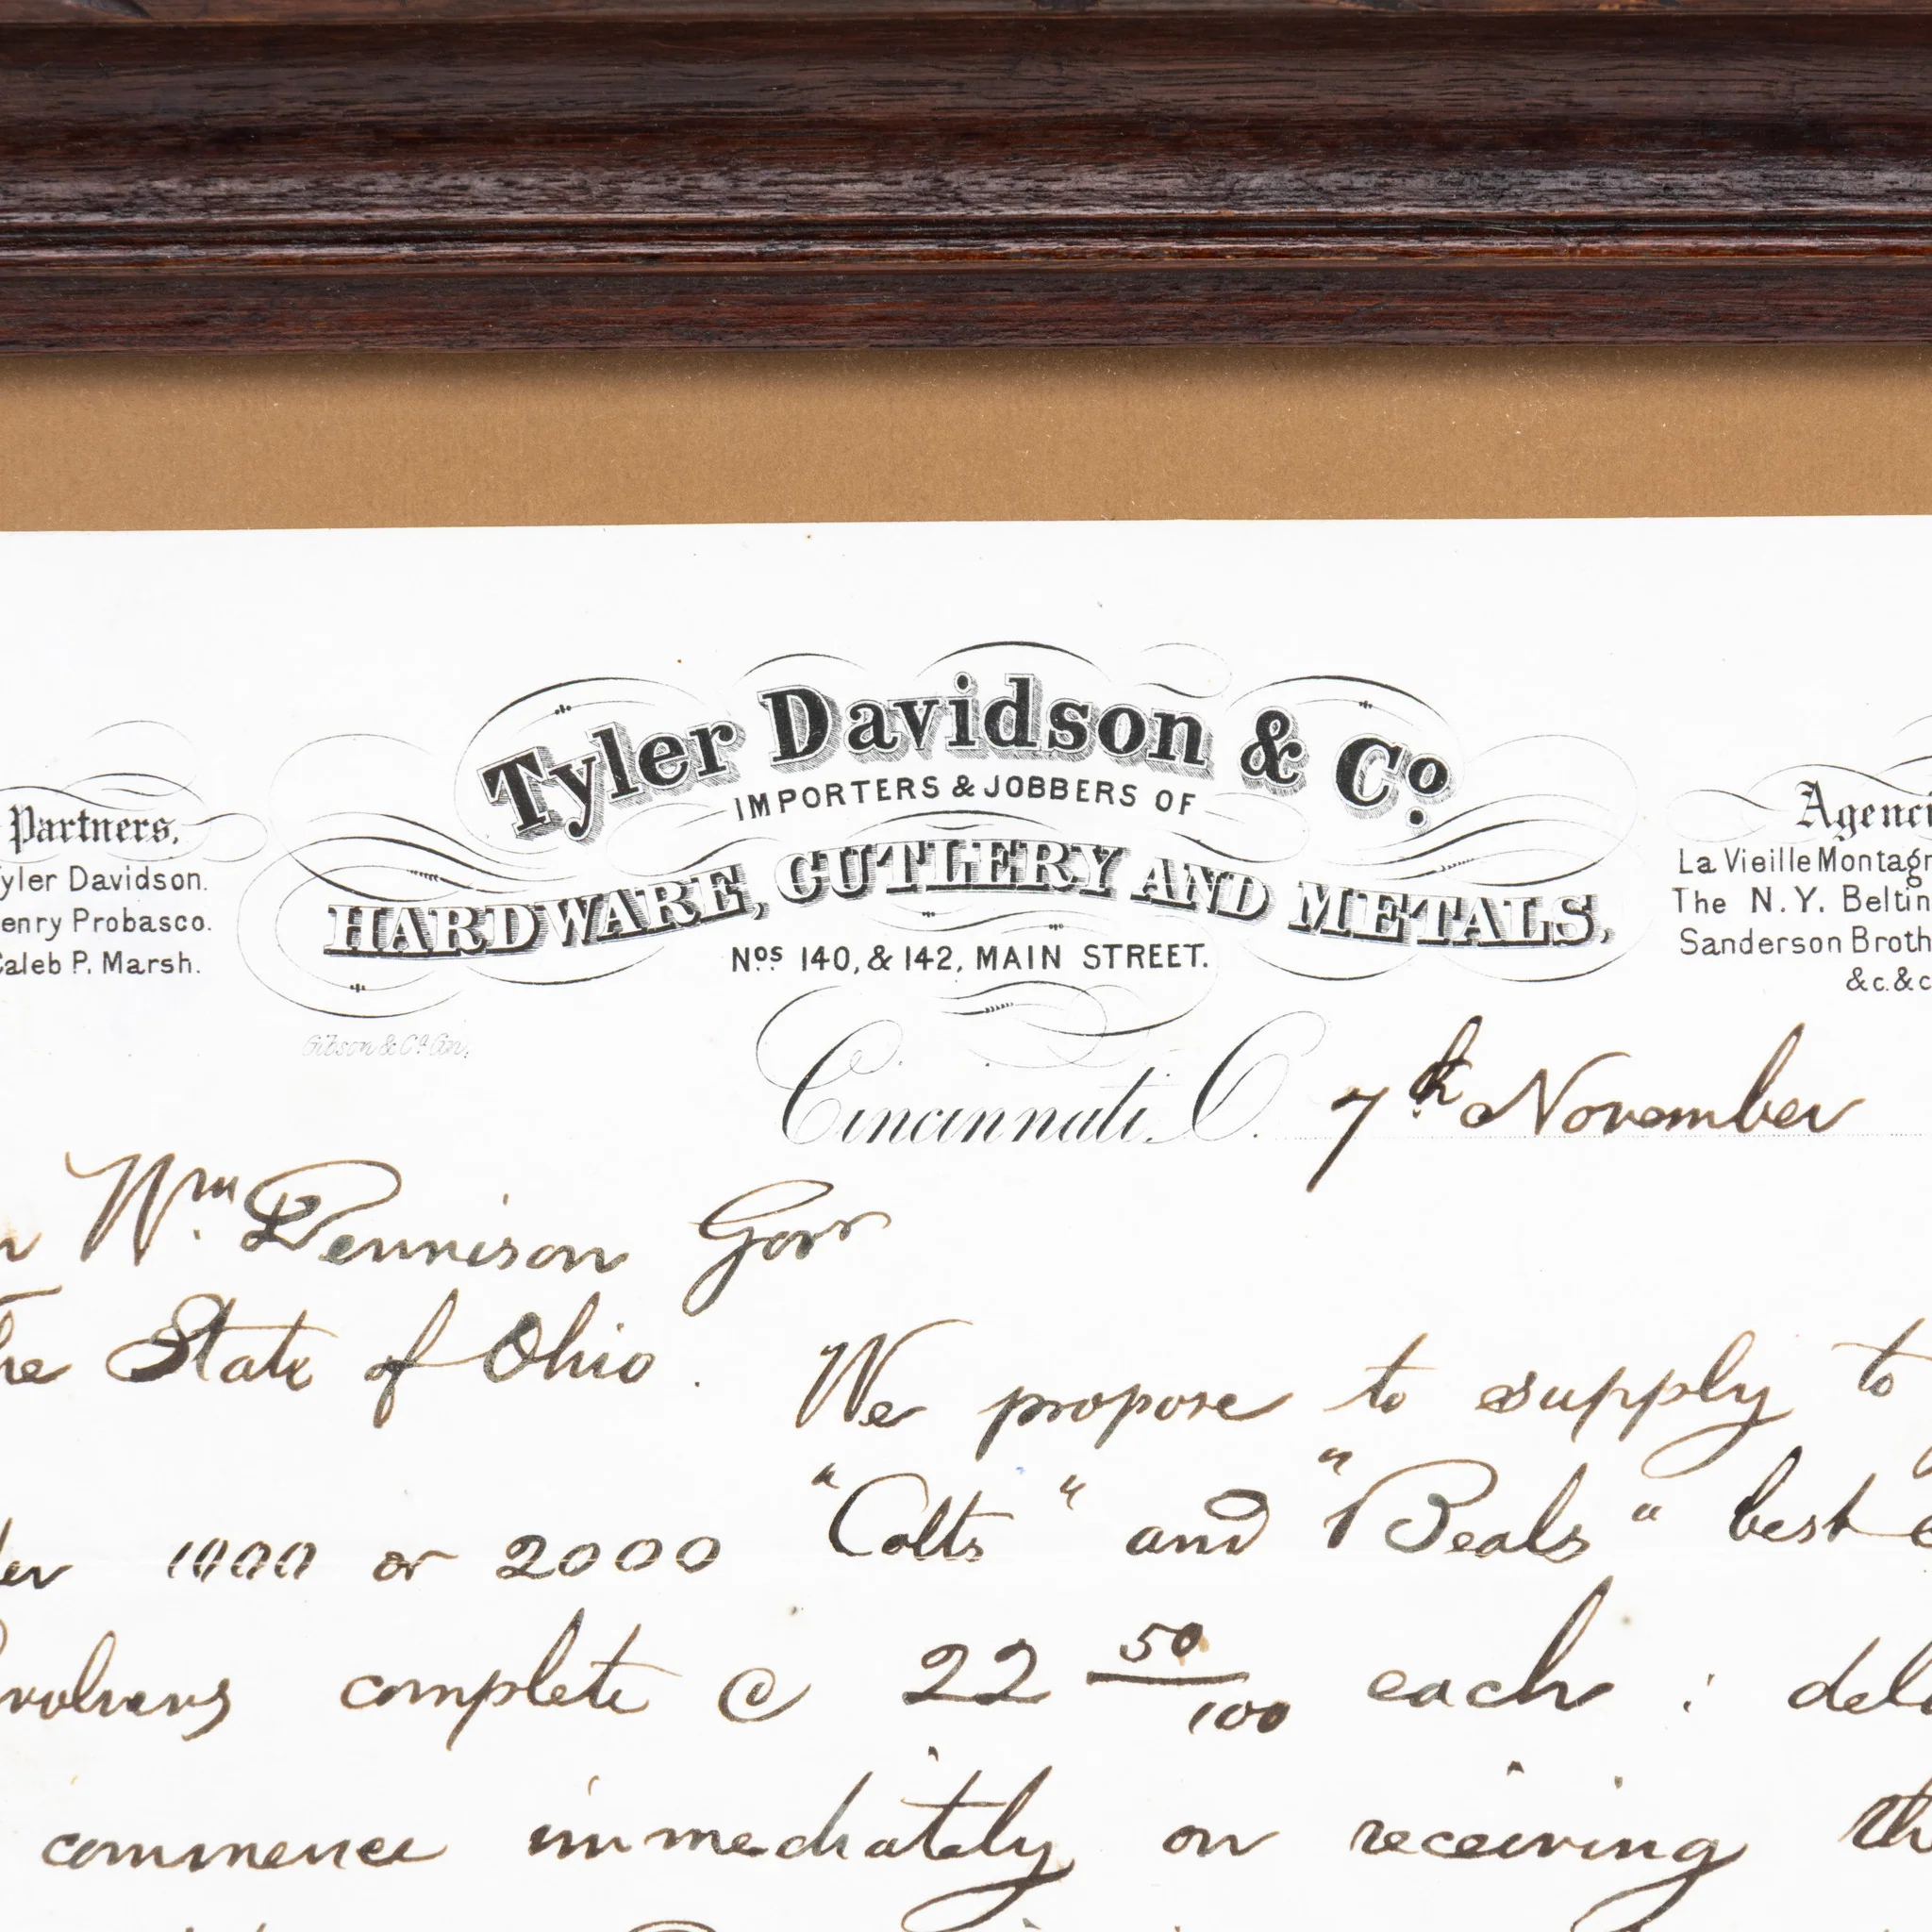 Tyler Davidson & Co.
IMPORTERS & JOBBERS OF
HARDWARE, CUTLERY AND METALS,
Nos 140, & 142, MAIN STREET.
Partners,
yler Davidson.
enry Probasco.
Caleb P. Marsh.
Agenci
La Vieille Montagn
The N.Y. Beltin
Sanderson Broth
&c. &c
Gibson & Co. Cin.
Cincinnati. O. 7th November
n Wm. Dennison Govr
he State of Ohio.
We propose to supply to
er 1000 or 2000 "Colts" and "Beals" best
volvers complete @ 22 50/100 each : del
commence immediately on receiving the